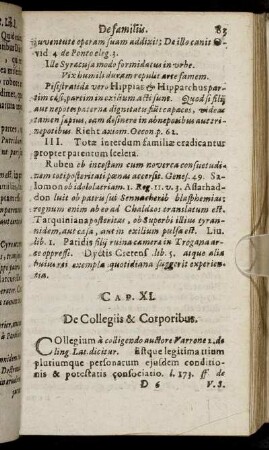 De familiis. 83
juventute operam suam addixit: De illo canit O-
vid 4 de Ponto eleg 3.
Ille Syracusa modo formidatus in urbe.
Vix humili duram repulit arte famem.
Pisistratidæ vero Hippias & Hipparchus par-
tim cæsi, partim in exilium acti sunt. Quod si filij
aut nepotes paternæ dignitatis fuêre capaces, videas
tamen sæpius, eam desinere in abnepotibus aut tri-
nepotibus. Richt axiom. Oecon. p. 62.
III. Totæ interdum familiæ eradicantur
propter parentum scelera.
Ruben ob incestam cum noverca consuetudi-
nem toti posteritati pœnas accersit. Genes. 49. Sa-
lomon ob idololatriam. 1. Reg. 11. v. 3. Assarhad-
don luit ob paternas Sennacherib blasphemias:
regnum enim ab eo ad Chaldæos translatum est.
Tarquiniana posteritas, ob Superbi illius tyran-
nidem, aut cæsa, aut in exilium pulsa est. Liu.
lib. 1. Paridis filij ruina cameræ in Trogana ar-
ce oppressi. Dyctis Cretens lib. 5. atque alia
huiusmodi exempla quotidiana suggerit experien-
tia.
CAP. XI.
De Collegiis & Corporibus.
COllegium à colligendo auctore Varrone 1. de
ling Lat. dicitur. Estque legitima trium
pluriumque personarum ejusdem conditio-
nis & potestatis consociatio. l. 173. ff de
D 6 V. S.